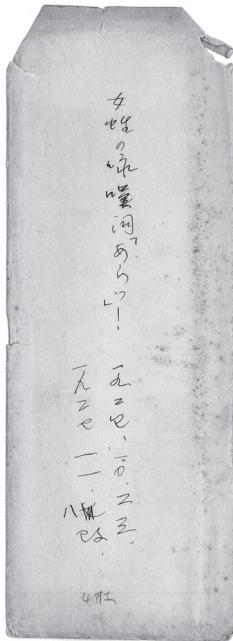 女性の詠嘆詞「あらッ」!
一九二七、一〇、二三、
一九二七、一一、八改、
4枚